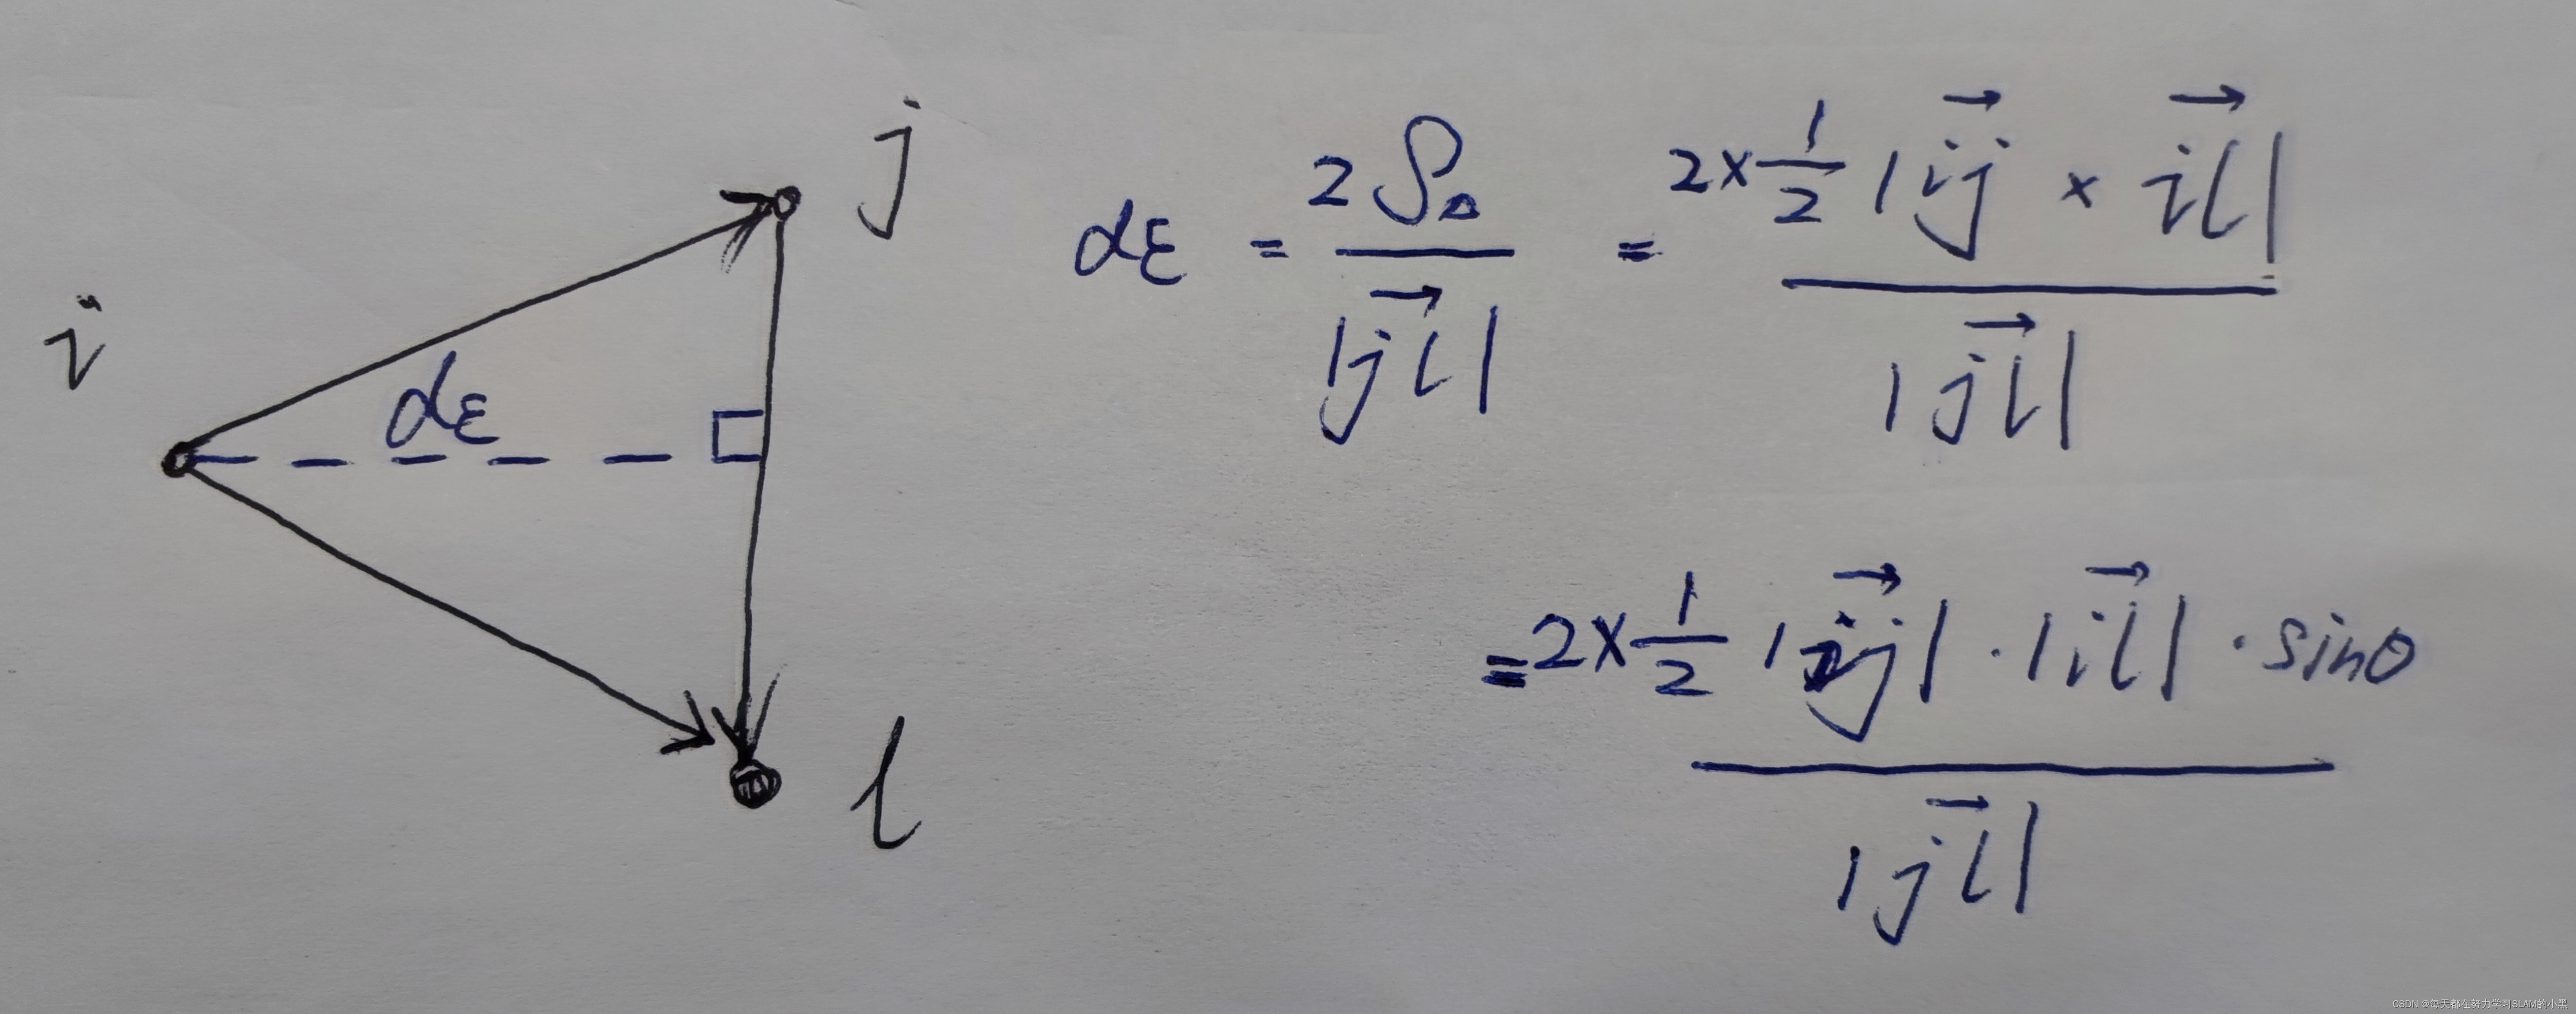 j
i
dε
l
dε = 2S△ / |jl→| = 2×1/2 |ij→ × il→| / |jl→|
= 2×1/2 |ij→| · |il→| · sinθ / |jl→|
CSDN @每天都在努力学习SLAM的小黑